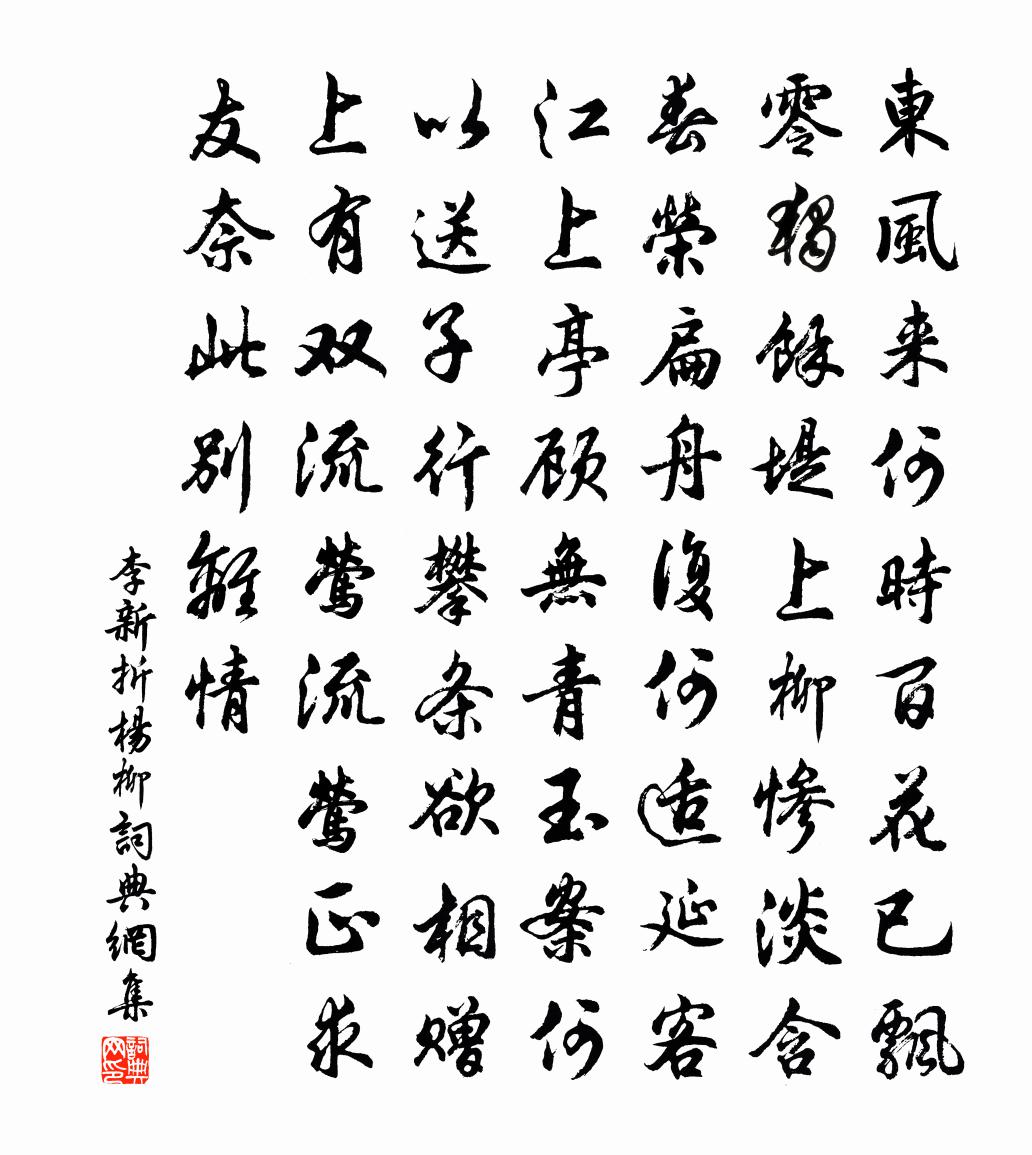 東風来何時百花已飄
零獨餘堤上柳慘淡含
春榮扁舟復何适延客
江上亭顾無青玉案何
以送子行攀条欲相赠
上有双流莺流莺正求
友奈此別離情
李新折楊柳詞典網集
詞典网印